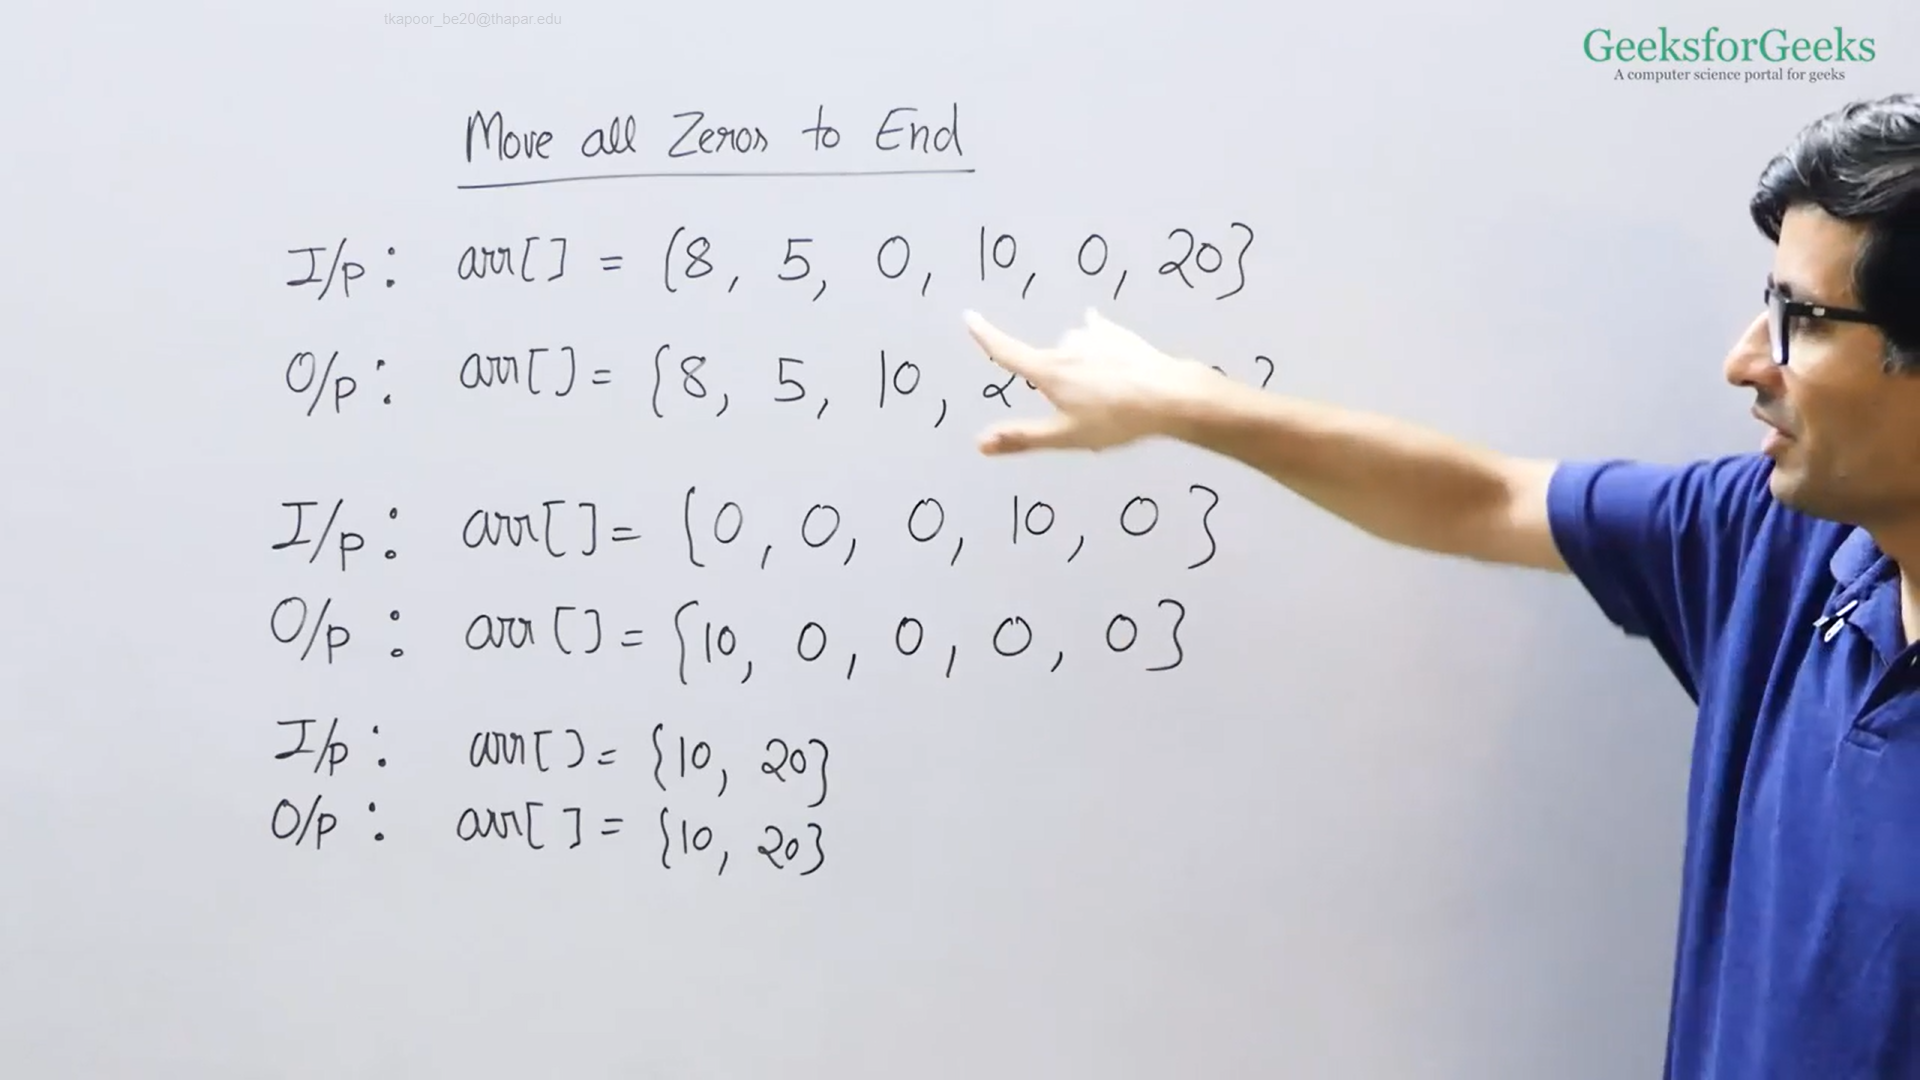 tkapoor_be20@thapar.edu
GeeksforGeeks
A computer science portal for geeks
Move all Zeros to End
I/p: arr[] = {8, 5, 0, 10, 0, 20}
O/p: arr[] = {8, 5, 10, }
I/p: arr[] = {0, 0, 0, 10, 0}
O/p: arr[] = {10, 0, 0, 0, 0}
I/p: arr[] = {10, 20}
O/p: arr[] = {10, 20}